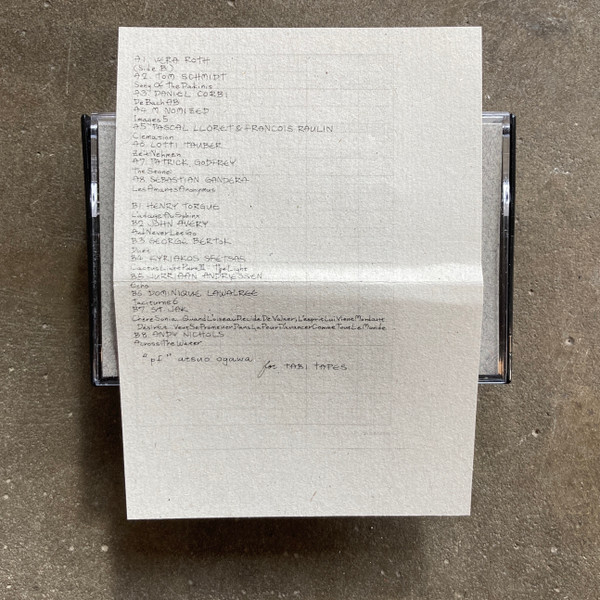 A1. VERA ROTH
(Side B)
A2. TOM SCHMIDT
Song Of The Dakinis
A3. DANIEL CORBI
De Bach AB
A4. M. NOMIZED
Images 5
A5. PASCAL LLORET & FRANCOIS RAULIN
Clemation
A6. LOTTI TAUBER
Zeit Nehmen
A7. PATRICK GODFREY
The Seagel
A8. SEBASTIAN GANDERA
Les Amants Anonymus
B1. HENRY TORGUE
L'adage Du Sphinx
B2. JOHN AVERY
And Never Let Go
B3. GEORGE BERTOK
Duet
B4. KYRIAKOS SFETSAS
Cactus Light Part II: The Light
B5. JURRIAAN ANDRIESSEN
B6. DOMINIQUE LAWALREE
Taciturne 6
B7. ST. JAK
Chère Sonia, Quand L'oiseau Décide De Voler, L'esprit Lui Vient
Désirée: Veut Se Promener Dans La Avancer Comme Tout Le Monde
B8. ANDY NICHOLS
Across The Water
"pf" atsuo ogawa
for TABI TAPES